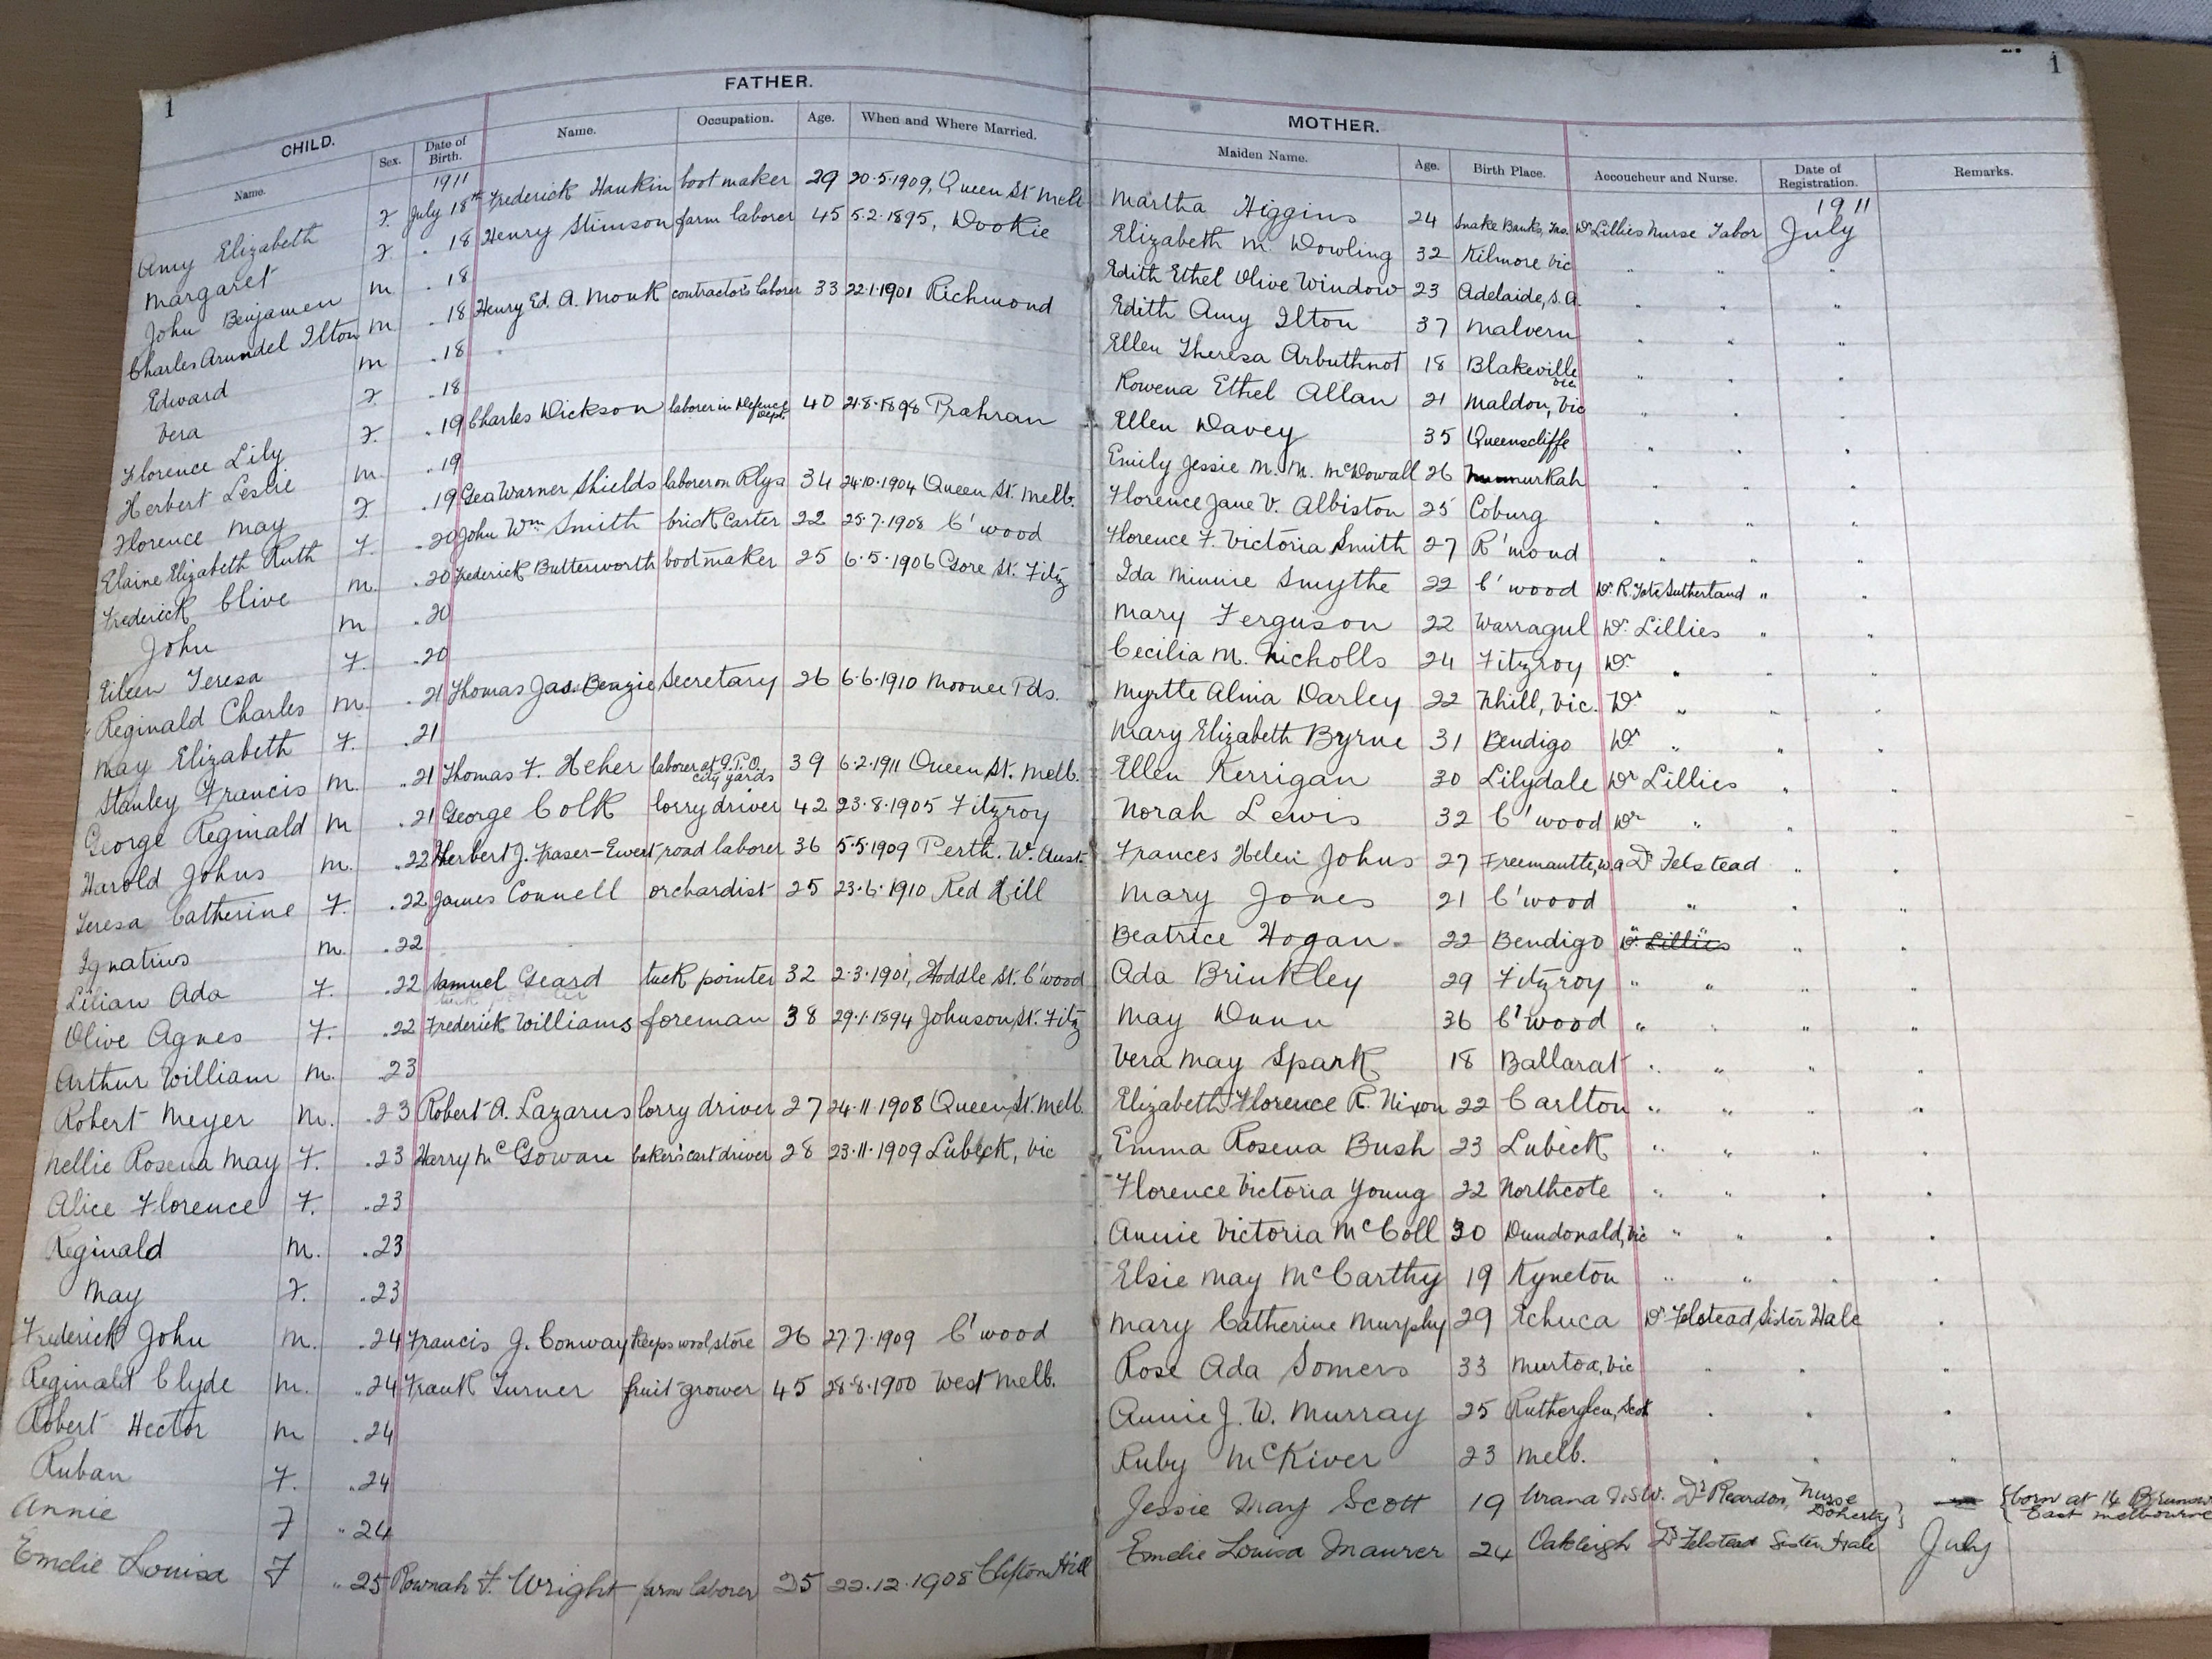 1
1
FATHER.
CHILD.
MOTHER.
Name. Sex. Date of Birth. Name. Occupation. Age. When and Where Married. Maiden Name. Age. Birth Place. Accoucheur and Nurse. Date of Registration. Remarks.
1911 1911
Amy Elizabeth F. July 18th Frederick Hankin boot maker 29 20.5.1909, Queen St Melb Martha Higgins 24 Snake Banks, Tas. Dr Lillies Nurse Tabor July
Margaret F. " 18 Henry Stimson farm laborer 45 5.2.1895, Dookie Elizabeth M. Dowling 32 Kilmore Vic " " "
John Benjamen M " 18 Edith Ethel Olive Window 23 Adelaide, S.A. " " "
Charles Arundel Ilton M. " 18 Henry Ed. A. Monk contractor's laborer 33 22.1.1901 Richmond Edith Amy Ilton 37 Malvern " " "
Edward M " 18 Ellen Theresa Arbuthnot 18 Blakeville Vic " " "
Vera F. " 18 Rowena Ethel Allan 21 Maldon, Vic " " "
Florence Lily F. " 19 Charles Dickson laborer in Defence Dept. 40 21.8.1898 Prahran Ellen Davey 35 Queenscliffe " " "
Herbert Leslie M. " 19 Emily Jessie M. M. McDowall 26 Numurkah " " "
Florence May F. " 19 Geo Warner Shields laborer on Rlys 34 24.10.1904 Queen St. Melb. Florence Jane V. Albiston 25 Coburg " " "
Elaine Elizabeth Ruth F. " 20 John Wm Smith brick carter 22 25.7.1908 C'wood Florence F. Victoria Smith 27 R'mond " " "
Frederick Clive M. " 20 Frederick Butterworth bootmaker 25 6.5.1906 Gore St. Fitz Ida Minnie Smythe 22 C'wood Dr. R. Tate Sutherland " "
John M " 20 Mary Ferguson 22 Warragul Dr. Lillies " "
Eileen Teresa F. " 20 Cecilia M. Nicholls 24 Fitzroy Dr "
Reginald Charles M. " 21 Thomas Jas. Beazie Secretary 26 6.6.1910 Moonee Pds. Myrtle Alma Darley 22 Nhill, Vic. Dr " " "
May Elizabeth F. " 21 Mary Elizabeth Byrne 31 Bendigo Dr " " "
Stanley Francis M. " 21 Thomas F. Heher laborer at G.P.O. city yards 39 6.2.1911 Queen St. Melb. Ellen Kerrigan 30 Lilydale Dr Lillies " "
George Reginald M " 21 George Colk lorry driver 42 23.8.1905 Fitzroy Norah Lewis 32 C'wood Dr " " "
Harold Johns M. " 22 Herbert J. Fraser-Ewert road laborer 36 5.5.1909 Perth. W. Aust. Frances Helen Johns 27 Freemantle, W.A Dr Felstead " "
Teresa Catherine F. " 22 James Connell orchardist 25 23.6.1910 Red Hill Mary Jones 21 C'wood " " "
Ignatius M. " 22 Beatrice Hogan 22 Bendigo Dr. Lillies " "
Lilian Ada F. " 22 Samuel Geard tuck pointer 32 2.3.1901, Hoddle St. C'wood Ada Brinkley 29 Fitzroy " " " "
Olive Agnes F. " 22 Frederick Williams foreman 38 29.1.1894 Johnson St. Fitz May Dunn 36 C'wood " " " "
Arthur William M. " 23 Vera May Spark 18 Ballarat " " " "
Robert Meyer M. " 23 Robert A. Lazarus lorry driver 27 24.11.1908 Queen St. Melb. Elizabeth Florence R. Nixon 22 Carlton " " " "
Nellie Rosena May F. " 23 Harry McGowan baker's cart driver 28 23.11.1909 Lubeck, Vic Emma Rosena Bush 23 Lubeck " " " "
Alice Florence F. " 23 Florence Victoria Young 22 Northcote " " " "
Reginald M. " 23 Annie Victoria McColl 30 Dundonald, Vic " " " "
May F. " 23 Elsie May McCarthy 19 Kyneton " " " "
Frederick John M. " 24 Francis J. Conway Keeps wool store 26 27.7.1909 C'wood Mary Catherine Murphy 29 Echuca Dr Felstead, Sister Hale "
Reginald Clyde M. " 24 Frank Turner fruit-grower 45 28.8.1900 West Melb. Rose Ada Somers 33 Murtoa, Vic " " "
Robert Hector M " 24 Annie J. W. Murray 25 Rutherglen, Scot " " "
Ruban F. " 24 Ruby McKiver 23 Melb. " " "
Annie F " 24 Jessie May Scott 19 Urana N.S.W. Dr Reardon, Nurse Doherty born at 14 Brunsw East Melbourne
Emelie Louisa F " 25 Rownah F. Wright farm laborer 25 22.12.1908 Clifton Hill Emelie Louisa Maurer 24 Oakleigh Dr Felstead Sister Hale July